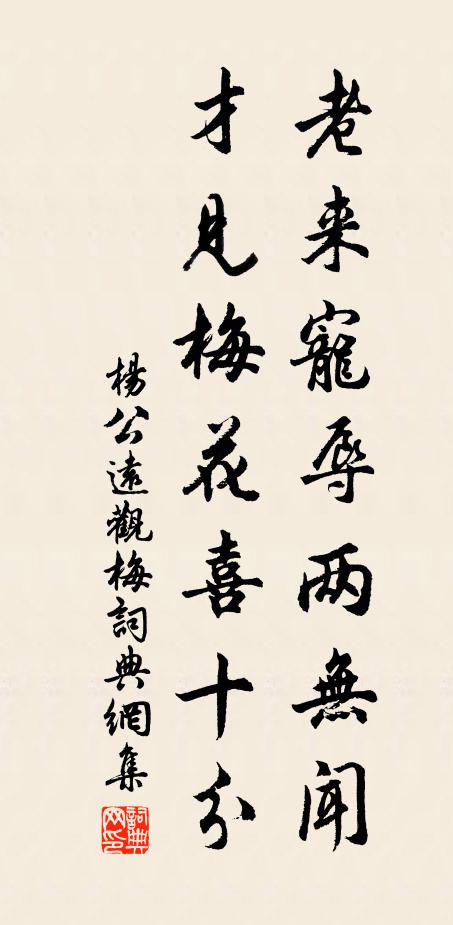 老来寵辱两無聞
才見梅花喜十分
楊公遠觀梅詞典網集
詞典網印